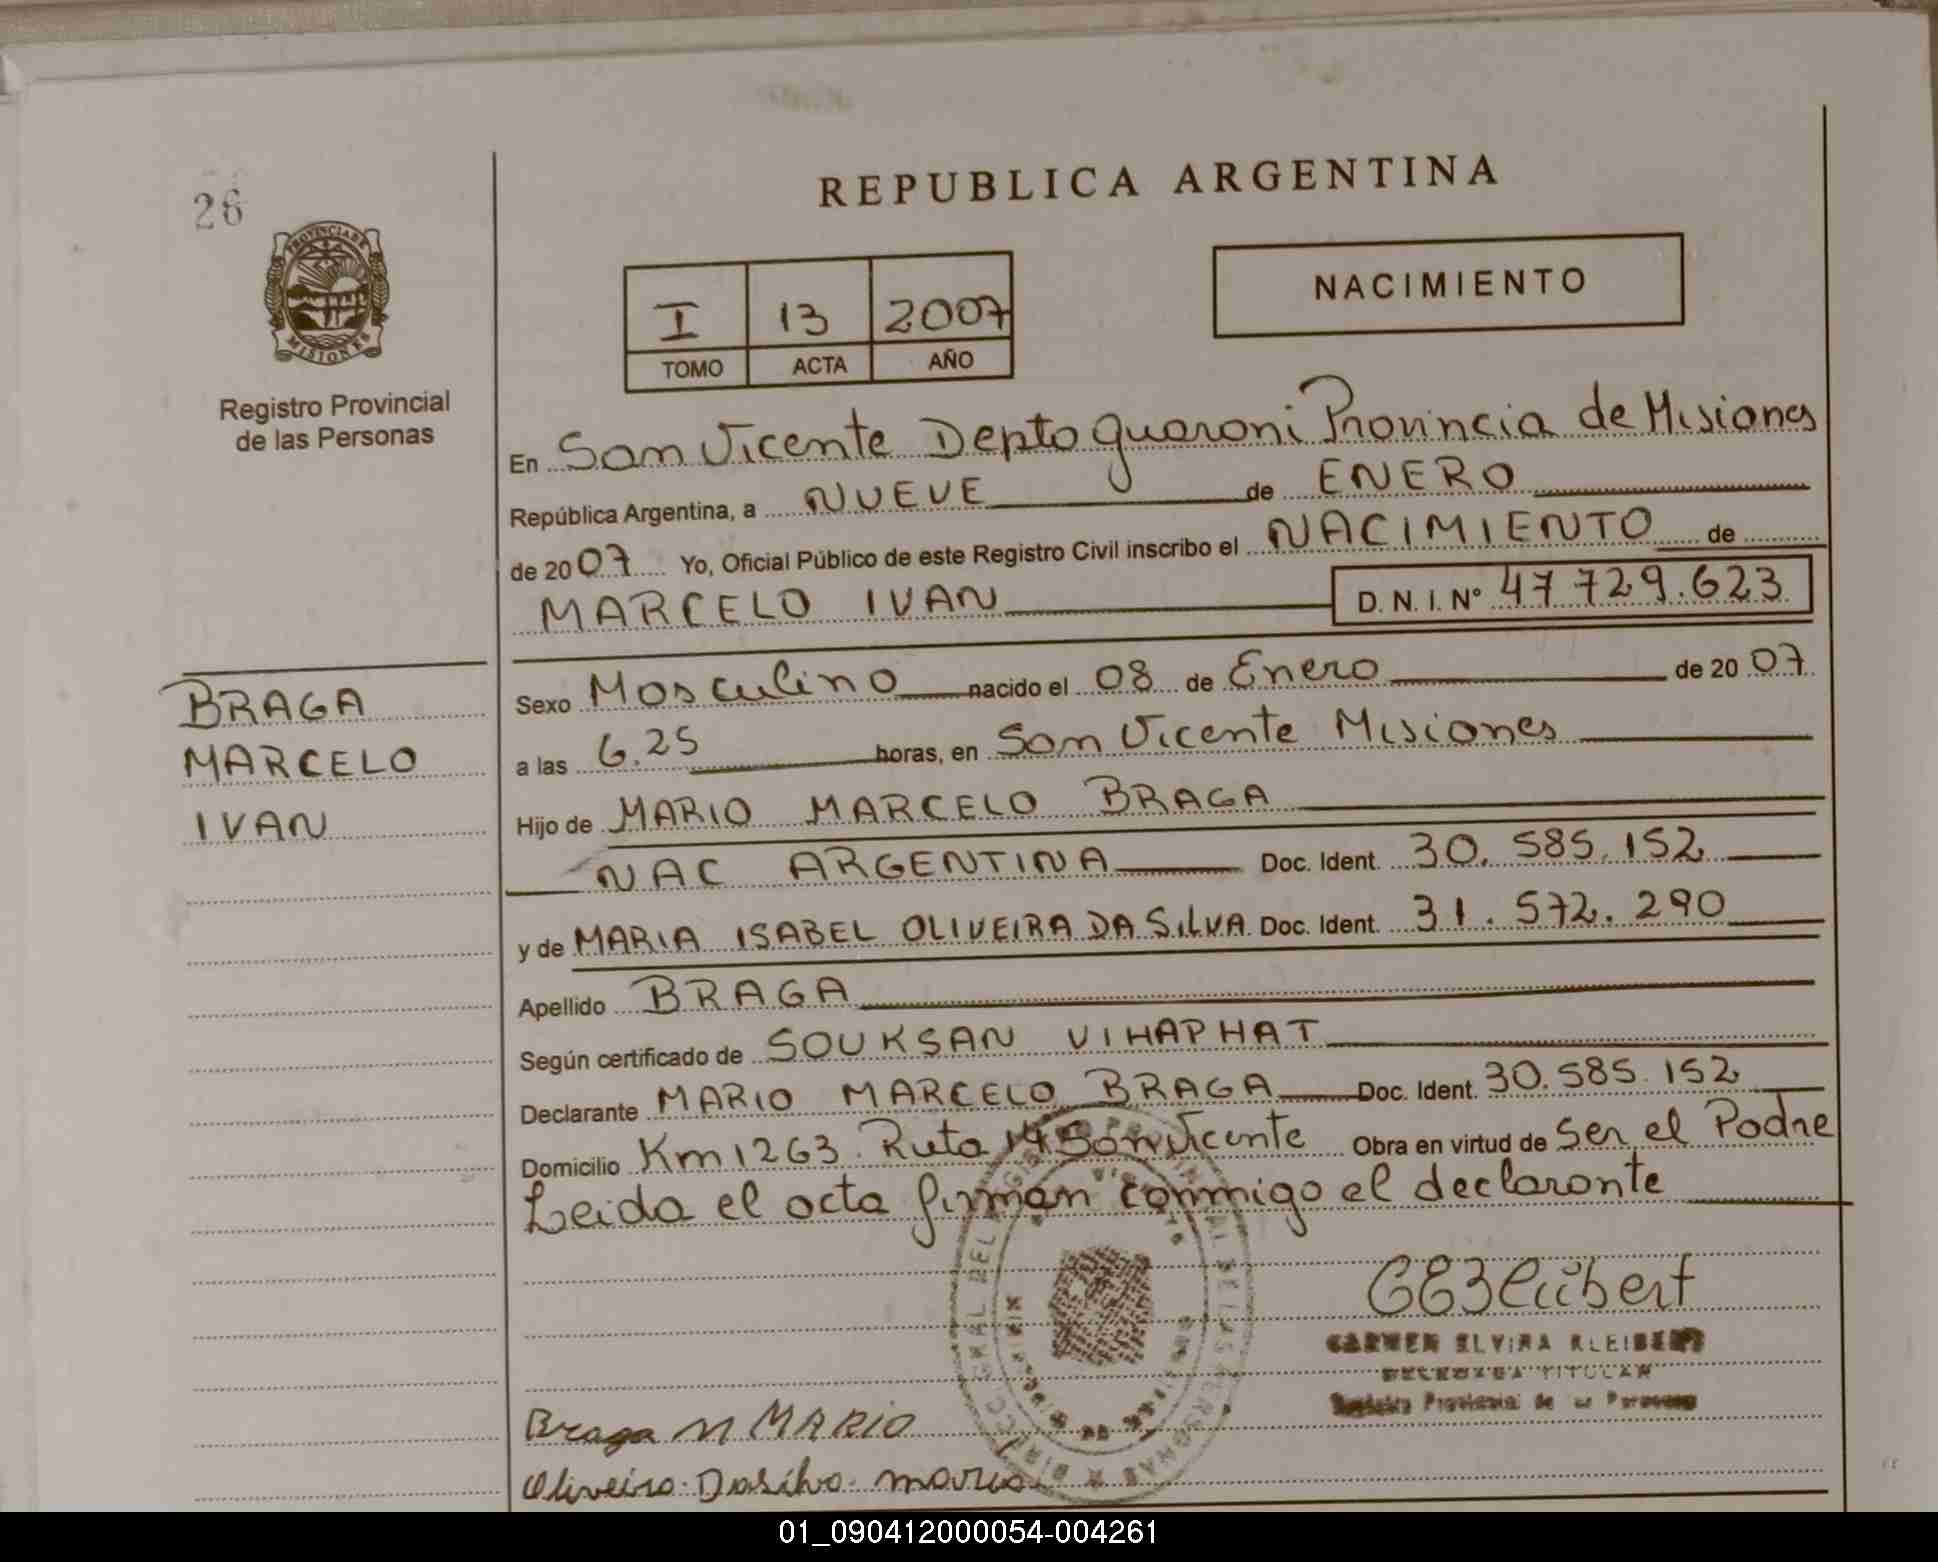 26
PROVINCIA DE
MISIONES
Registro Provincial
de las Personas
REPUBLICA ARGENTINA
I 13 2007
TOMO ACTA AÑO
NACIMIENTO
En San Vicente Depto Guarani Provincia de Misiones
República Argentina, a NUEVE de ENERO
de 2007 Yo, Oficial Público de este Registro Civil inscribo el NACIMIENTO de
MARCELO IVAN D.N.I. Nº 47 729.623
BRAGA
MARCELO
IVAN
Sexo Masculino nacido el 08 de Enero de 2007
a las 6.25 horas, en San Vicente Misiones
Hijo de MARIO MARCELO BRAGA
NAC ARGENTINA Doc. Ident. 30.585.152
y de MARIA ISABEL OLIVEIRA DA SILVA Doc. Ident. 31.572.290
Apellido BRAGA
Según certificado de SOUKSAN VIHAPHAT
Declarante MARIO MARCELO BRAGA Doc. Ident. 30.585.152
Domicilio Km 1263 Ruta 14 San Vicente Obra en virtud de Ser el Padre
Leida el acta firman conmigo el declarante
CARMEN ELVIRA KLEIBERT
DELEGADA TITULAR
Registro Provincial de las Personas
Braga M MARIO
Oliveira Dasilva maria
01_090412000054-004261